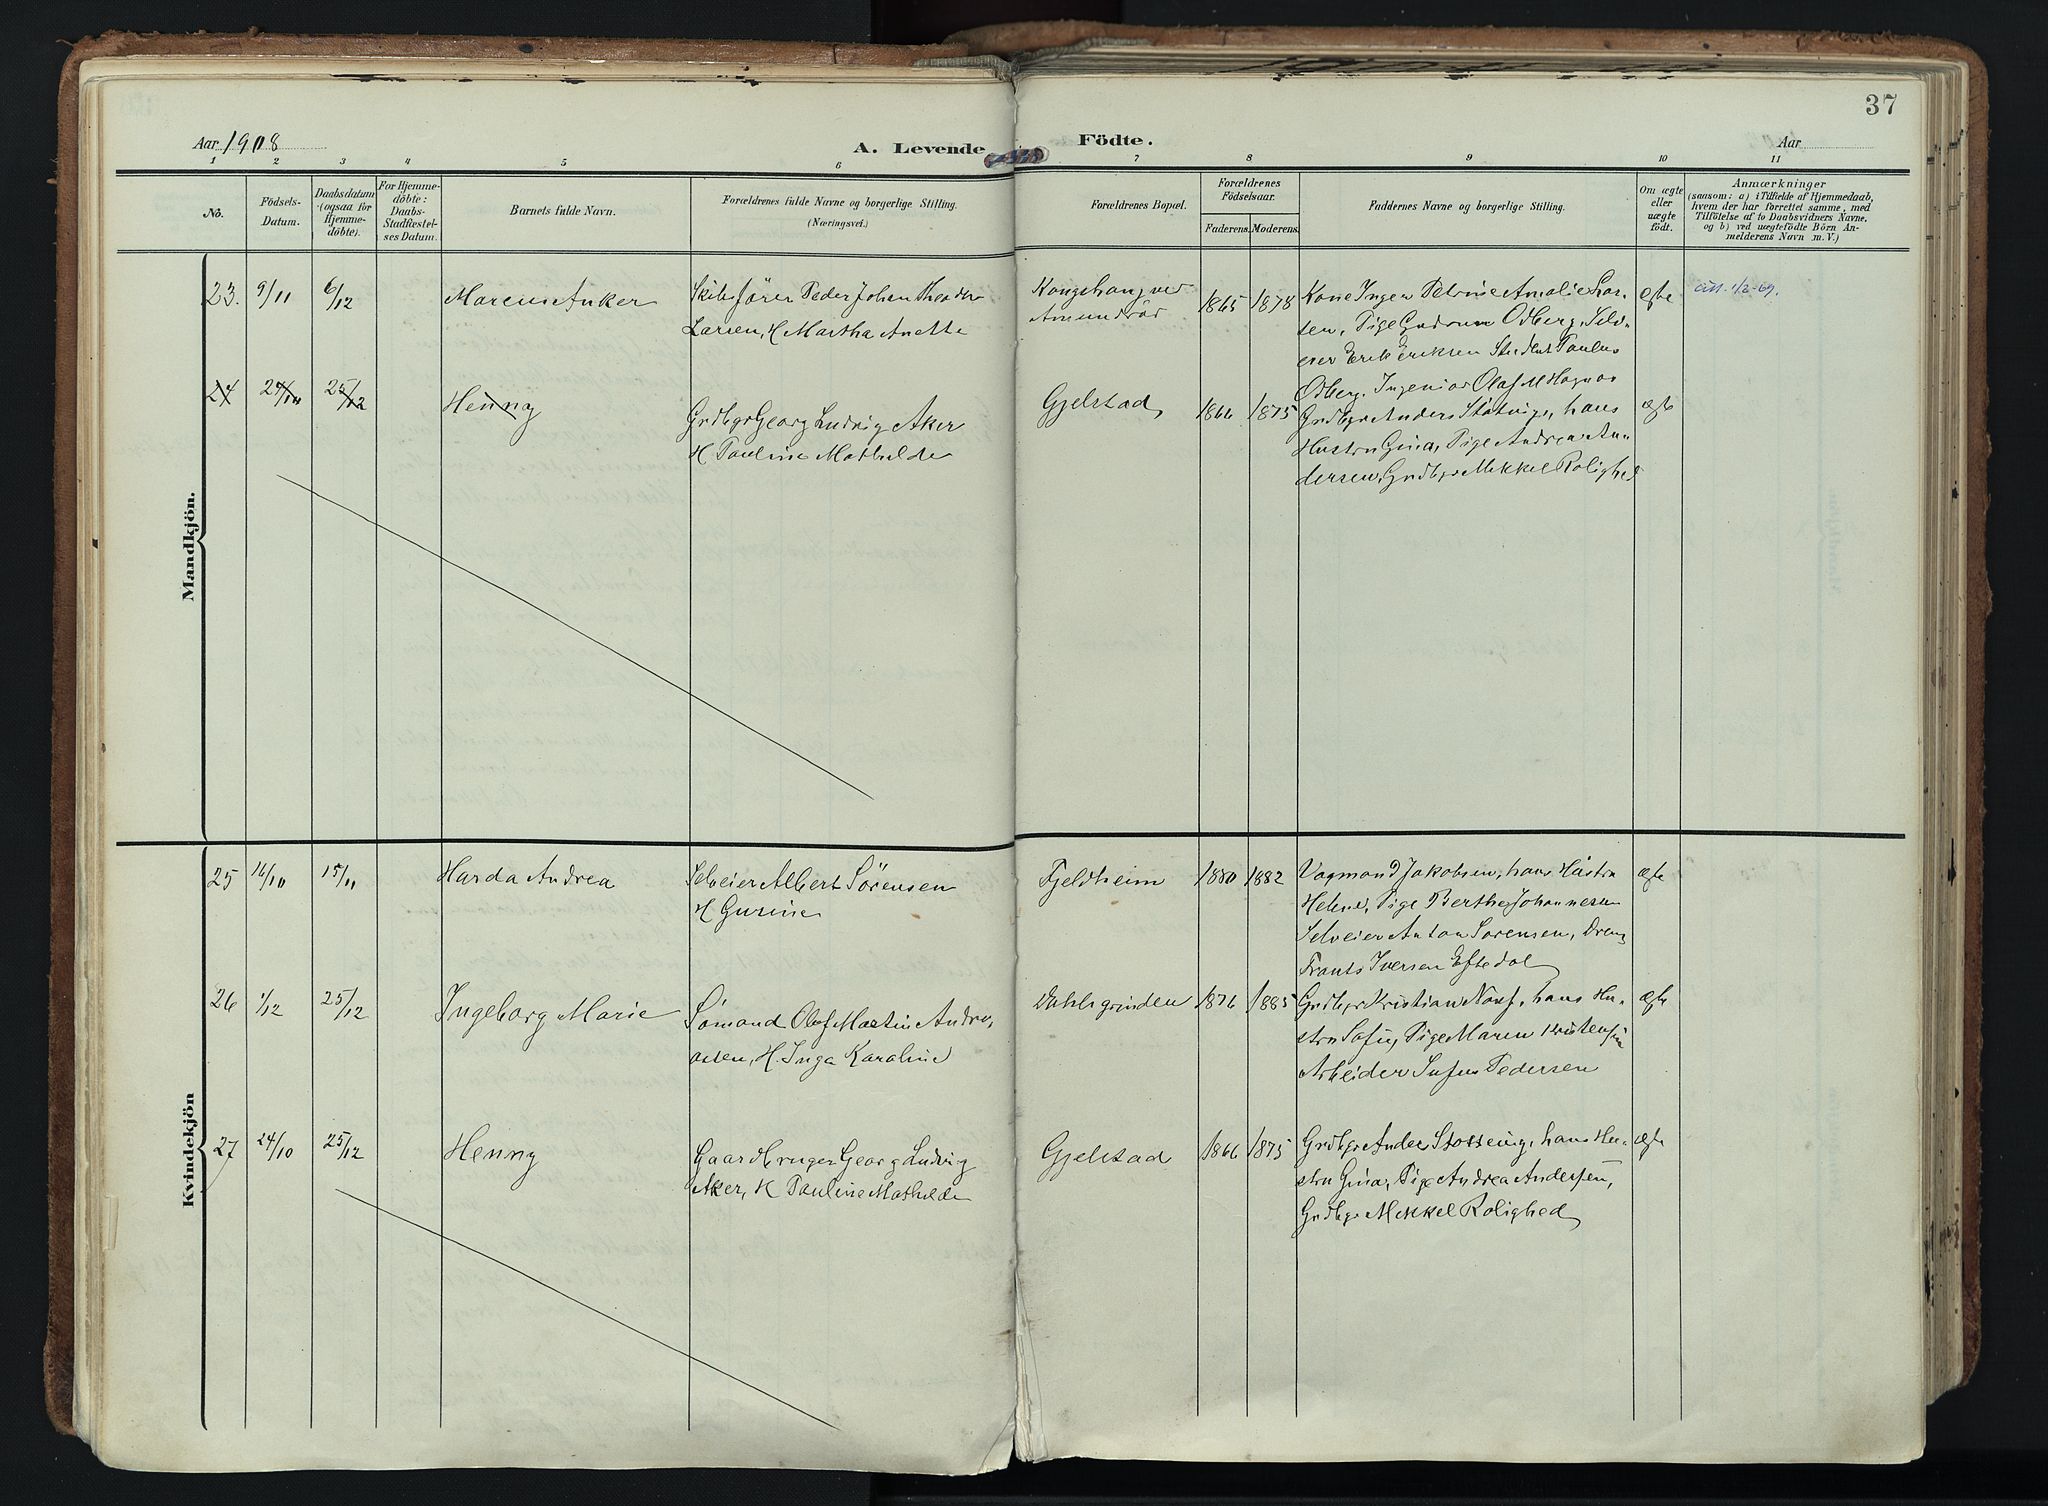 37
Aar 1908
A. Levende
Födte.
Aar
1 2 3 4 5 6 7 8 9 10 11
No.
Födsels-
Datum.
Daabsdatum
(ogsaa for
Hjemme-
döbte).
For Hjemme-
döbte:
Daabs-
Stadfæstel-
ses Datum.
Barnets fulde Navn.
Forældrenes fulde Navne og borgerlige Stilling.
(Næringsvei.)
Forældrenes Bopæl.
Forældrenes
Födselsaar.
Faderens. Moderens.
Faddernes Navne og borgerlige Stilling.
Om ægte
eller
uægte
født.
Anmærkninger
(saasom: a) i Tilfælde af Hjemmedaab,
hvem der har forrettet samme, med
Tilföielse af to Daabsvidners Navne,
og b) ved uægtefödte Börn An-
melderens Navn m. V.)
Mandkjön.
23. 9/11 6/12 Marcus Anker
Skibsfører Peder Johan
Larsen, H Martha Anette
Amundrød
1865 1878
Kone Inger Petrine Amalie Lar-
sen, Pige Gudrun Odberg, Selv-
eier Erik Eriksen Student Paulus
Odberg, Ingeniør Olaf M
ægte
att. 1/2-69.
24 24/10 25/12 Henny
Grdbgr Georg Ludvig Aker
H Pauline Mathilde
Gjelstad
1866 1875
Grdbgr Anders, hans
Hustru Gina, Pige Andrea An-
dersen, Grdbgr Mikkel Rolighed
ægte
Kvindekjön
25 16/10 15/11 Harda Andrea
Selveier Albert Sörensen
H Gurine
Fjeldheim
1880 1882
Vogmand Jakobsen, hans Hustru
Helene, Pige Berthe Johannessen
Selveier Anton Sorensen, Dreng
Frants Iversen Eftedal
ægte
26 1/12 25/12 Ingeborg Marie
Sømand Olaf Martin Andre-
assen, H. Inga Karoline
Dahlsgrinden
1876 1885
Grdbgr Kristian, hans Hu-
stru Sofie, Pige Maren Kristensen
Arbeider Sofus Pedersen
ægte
27 24/10 25/12 Henny
Gaardbruger Georg Ludvig
Aker, H Pauline Mathilde
Gjelstad
1866 1875
Grdbgr Anders, hans Hu-
stru Gina, Pige Andrea Andersen,
Grdbgr Mikkel Rolighed
ægte